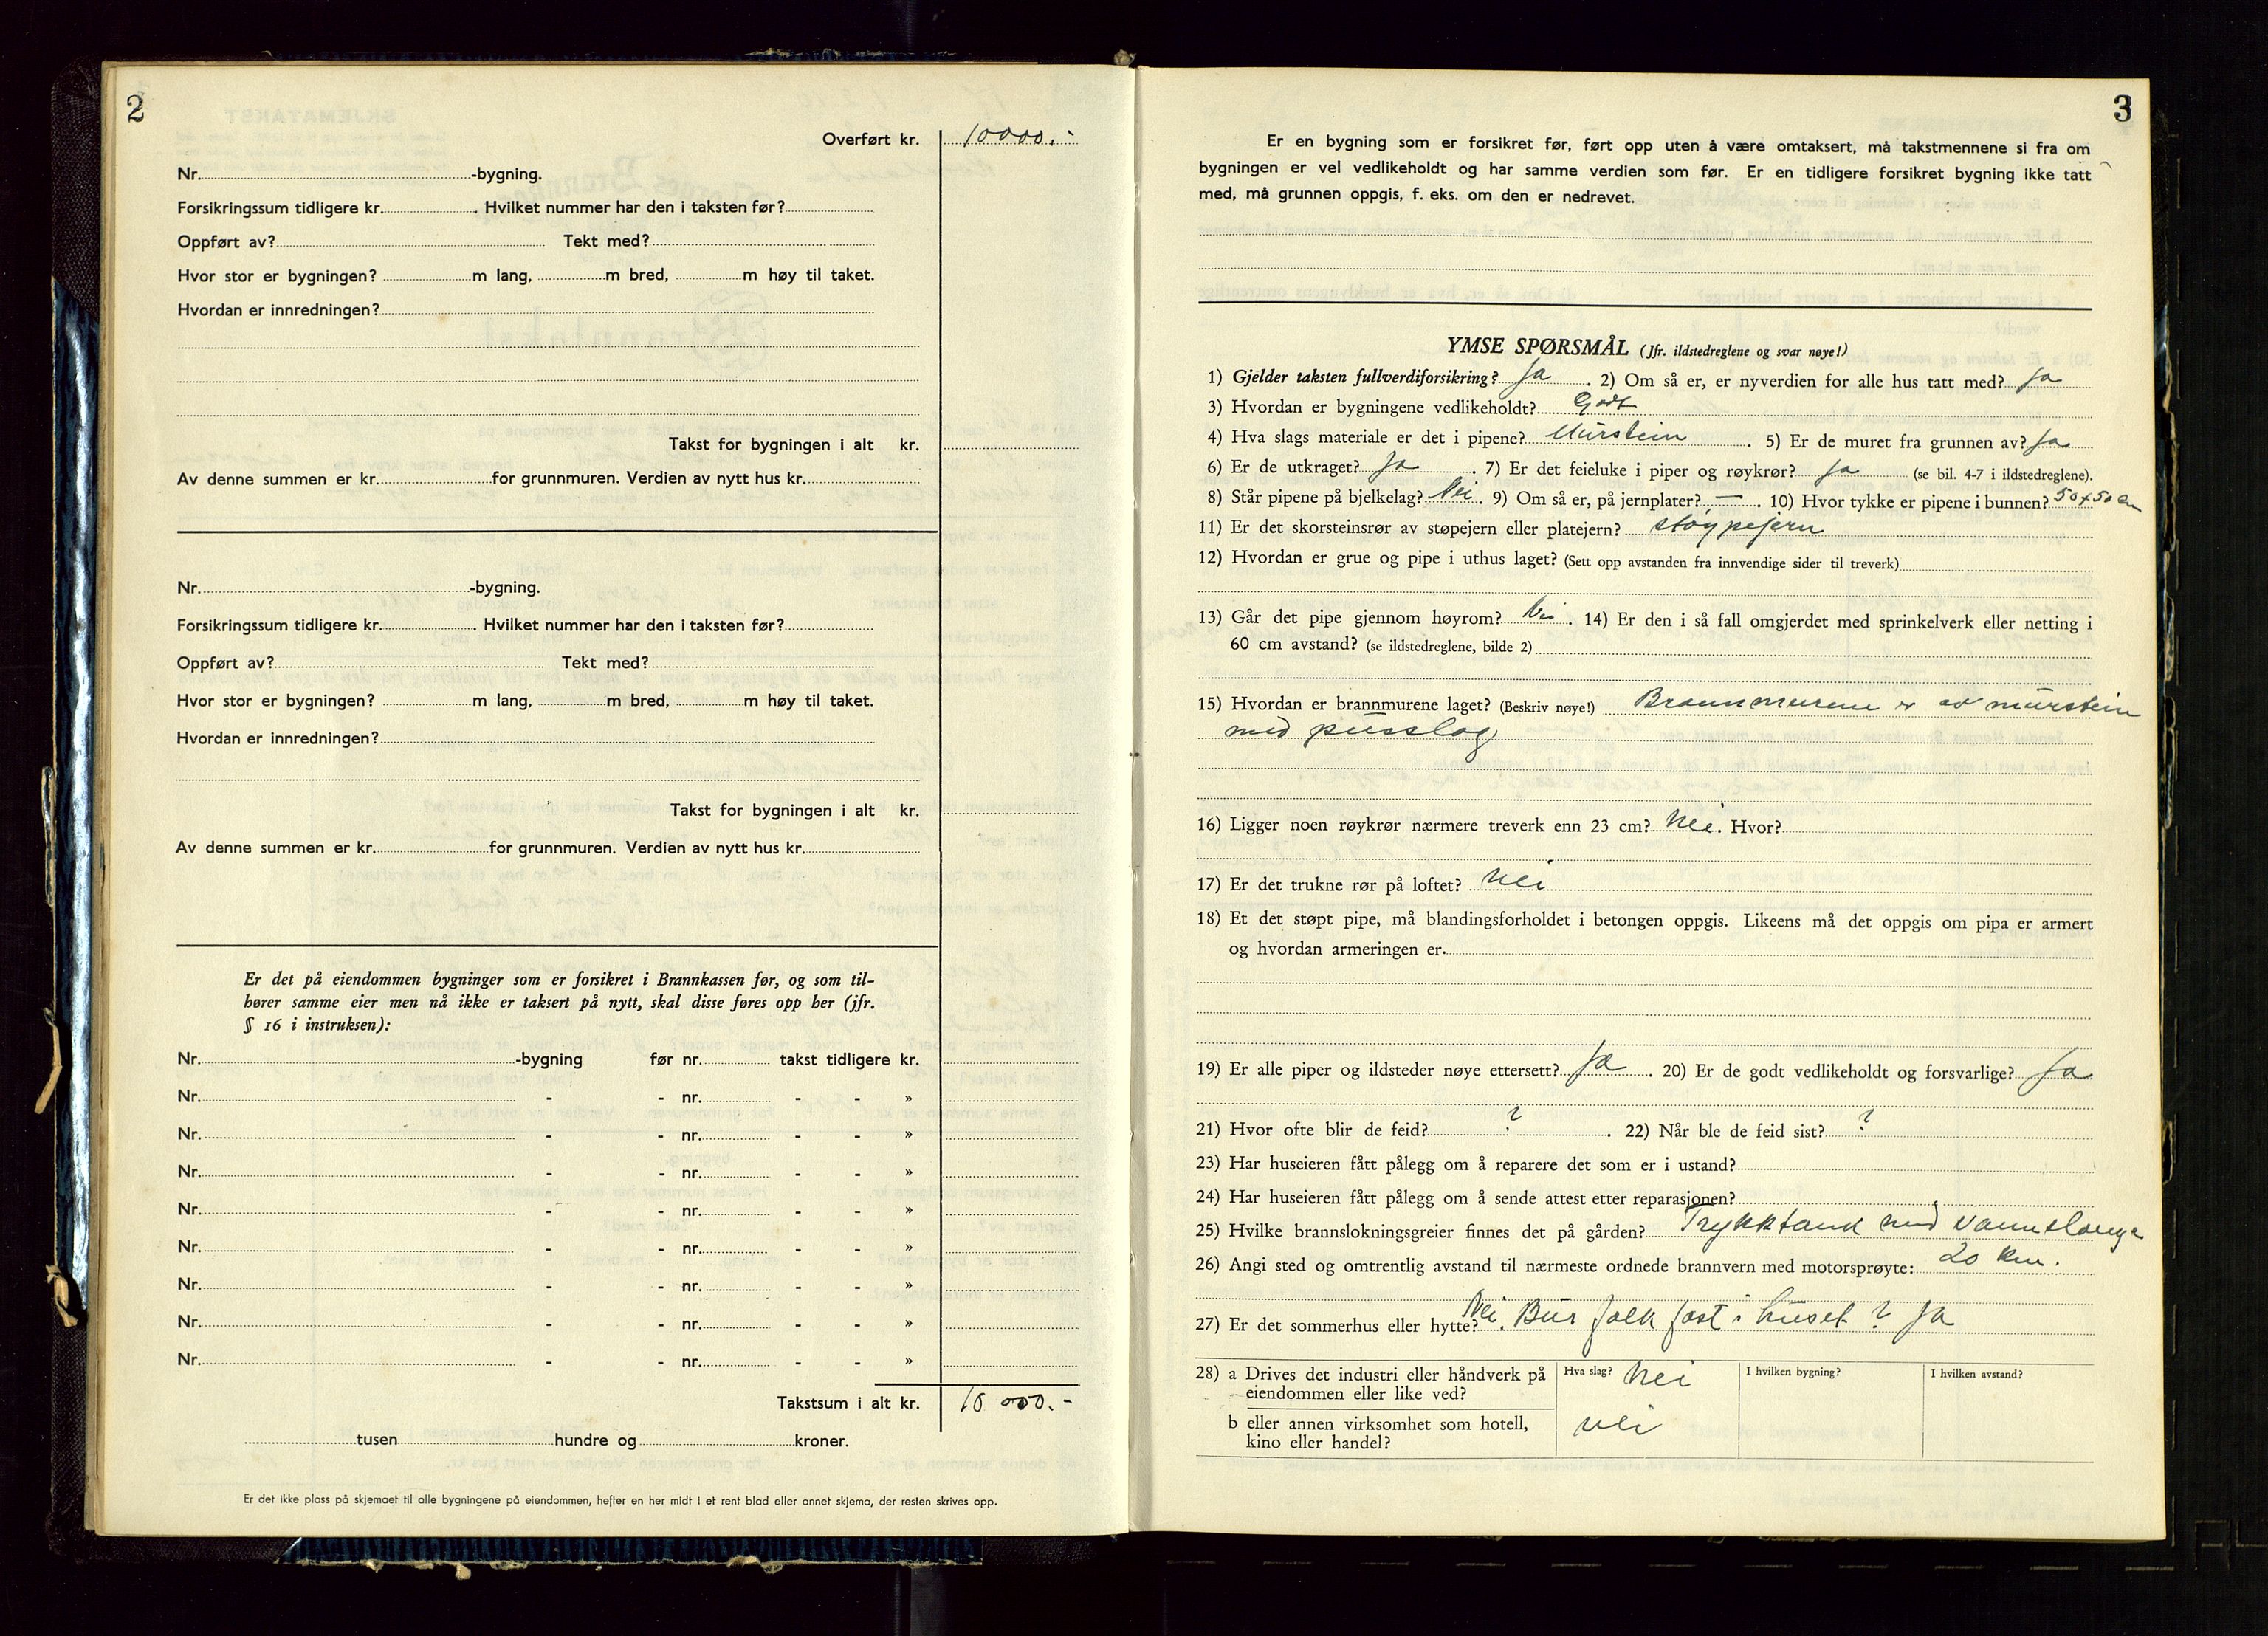 2
Overført kr. 10000.-
Nr. -bygning.
Forsikringssum tidligere kr. . Hvilket nummer har den i taksten før?
Oppført av? Tekt med?
Hvor stor er bygningen? m lang, m bred, m høy til taket.
Hvordan er innredningen?
Takst for bygningen i alt kr.
Av denne summen er kr. for grunnmuren. Verdien av nytt hus kr.
Nr. -bygning.
Forsikringssum tidligere kr. . Hvilket nummer har den i taksten før?
Oppført av? Tekt med?
Hvor stor er bygningen? m lang, m bred, m høy til taket.
Hvordan er innredningen?
Takst for bygningen i alt kr.
Av denne summen er kr. for grunnmuren. Verdien av nytt hus kr.
Er det på eiendommen bygninger som er forsikret i Brannkassen før, og som til-
hører samme eier men nå ikke er taksert på nytt, skal disse føres opp her (jfr.
§ 16 i instruksen):
Nr. -bygning før nr. takst tidligere kr.
Nr. - - nr. - - »
Nr. - - nr. - - »
Nr. - - nr. - - »
Nr. - - nr. - - »
Nr. - - nr. - - »
Nr. - - nr. - - »
Nr. - - nr. - - »
Nr. - - nr. - - »
Takstsum i alt kr. 10 000.-
tusen hundre og kroner.
Er det ikke plass på skjemaet til alle bygningene på eiendommen, hefter en her midt i et rent blad eller annet skjema, der resten skrives opp.
3
Er en bygning som er forsikret før, ført opp uten å være omtaksert, må takstmennene si fra om
bygningen er vel vedlikeholdt og har samme verdien som før. Er en tidligere forsikret bygning ikke tatt
med, må grunnen oppgis, f. eks. om den er nedrevet.
YMSE SPØRSMÅL (Jfr. ildstedreglene og svar nøye!)
1) Gjelder taksten fullverdiforsikring? Ja . 2) Om så er, er nyverdien for alle hus tatt med? Ja
3) Hvordan er bygningene vedlikeholdt? Godt
4) Hva slags materiale er det i pipene? Murstein . 5) Er de muret fra grunnen av? Ja
6) Er de utkraget? Ja . 7) Er det feieluke i piper og røykrør? Ja (se bil. 4-7 i ildstedreglene).
8) Står pipene på bjelkelag? Nei . 9) Om så er, på jernplater? — . 10) Hvor tykke er pipene i bunnen? 50x50 cm
11) Er det skorsteinsrør av støpejern eller platejern? støypejern
12) Hvordan er grue og pipe i uthus laget? (Sett opp avstanden fra innvendige sider til treverk)
13) Går det pipe gjennom høyrom? Nei . 14) Er den i så fall omgjerdet med sprinkelverk eller netting i
60 cm avstand? (se ildstedreglene, bilde 2)
15) Hvordan er brannmurene laget? (Beskriv nøye!) Brannmurene er av murstein
med pusslag
16) Ligger noen røykrør nærmere treverk enn 23 cm? Nei. Hvor?
17) Er det trukne rør på loftet? Nei
18) Et det støpt pipe, må blandingsforholdet i betongen oppgis. Likeens må det oppgis om pipa er armert
og hvordan armeringen er.
19) Er alle piper og ildsteder nøye ettersett? Ja . 20) Er de godt vedlikeholdt og forsvarlige? Ja
21) Hvor ofte blir de feid? ? . 22) Når ble de feid sist? ?
23) Har huseieren fått pålegg om å reparere det som er i ustand?
24) Har huseieren fått pålegg om å sende attest etter reparasjonen?
25) Hvilke brannslokningsgreier finnes det på gården? Trykktank med vannslange
26) Angi sted og omtrentlig avstand til nærmeste ordnede brannvern med motorsprøyte: 20 km.
27) Er det sommerhus eller hytte? Nei. Bur folk fast i huset? Ja
28) a Drives det industri eller håndverk på
eiendommen eller like ved?
Hva slag? Nei I hvilken bygning? I hvilken avstand?
b eller annen virksomhet som hotell,
kino eller handel?
Nei